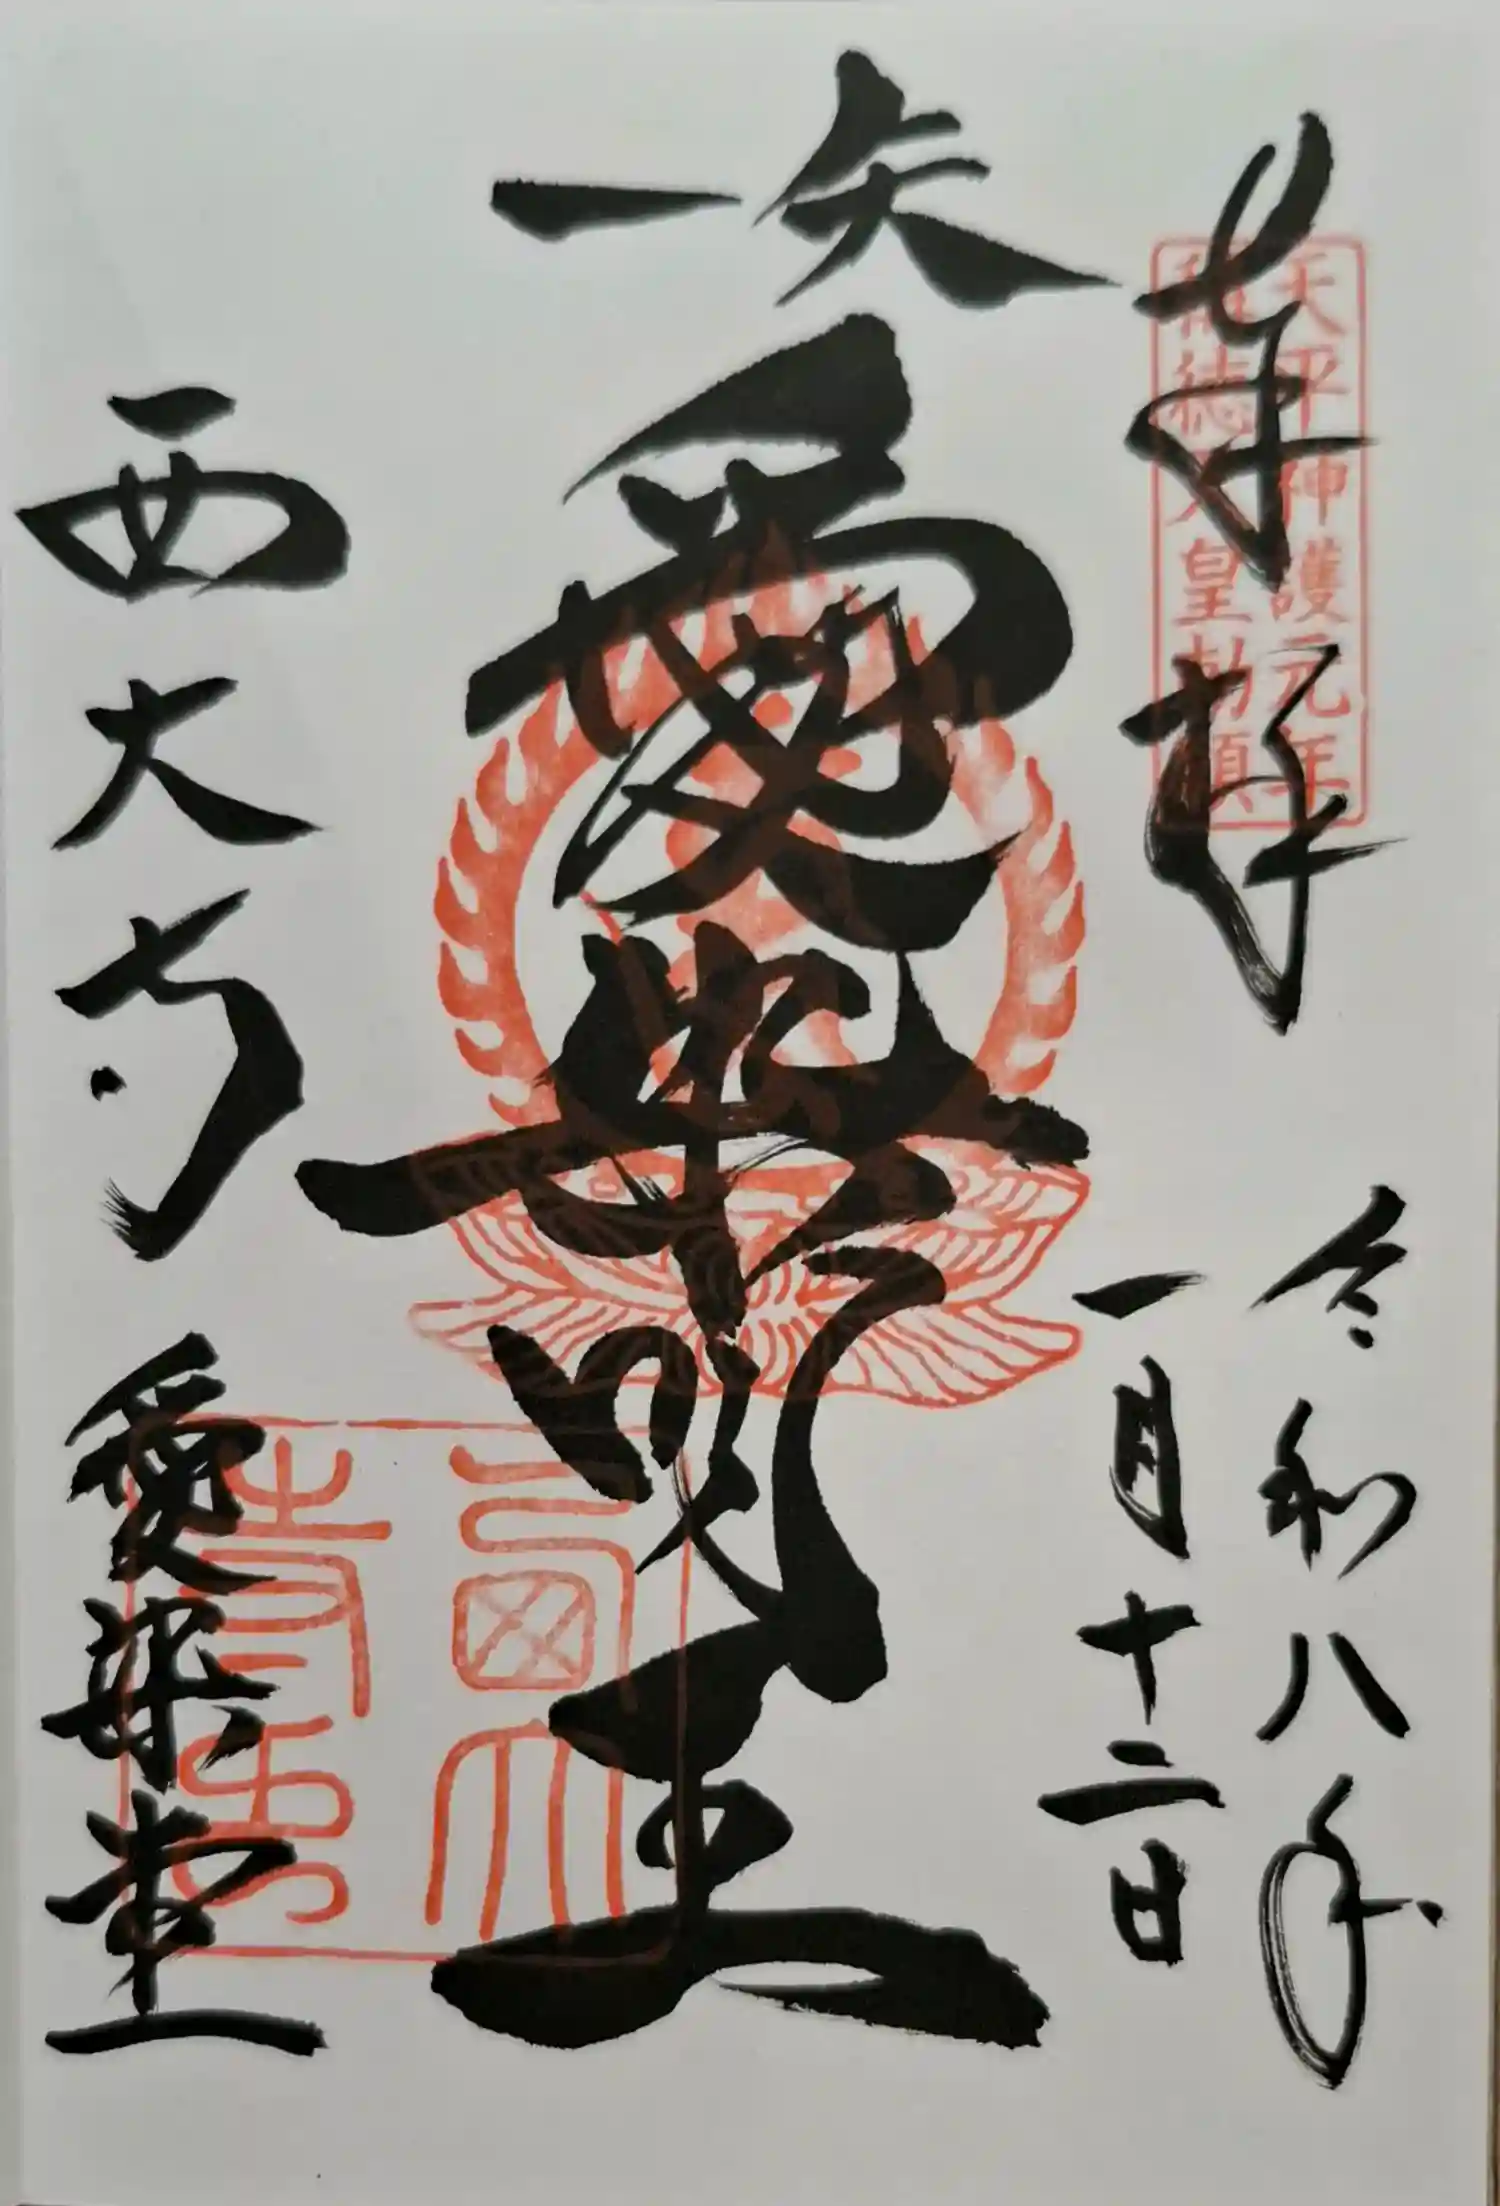 奉拝
天平神護元年
稱徳天皇勅願
令和八年
一月十二日
一矢
愛染明王
西大寺 愛染堂
西大
寺印